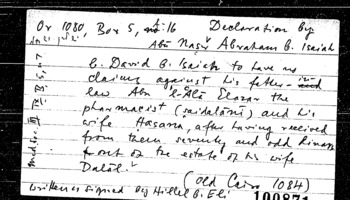 Or 1080, Box 5, no: 16 Declaration by
Abū Naṣr Abraham b. Isaiah
b. David b. Isaiah to have no
claims against his father-in
law Abu 'l-Alā Elazar the
pharmacist (saidelānī) and his
wife Hasana, after having received
from them seventy and odd dinars
out of the estate of his wife
Dalāl.
(Old Cairo 1084)
Written & signed by Hillel b. Eli
100871